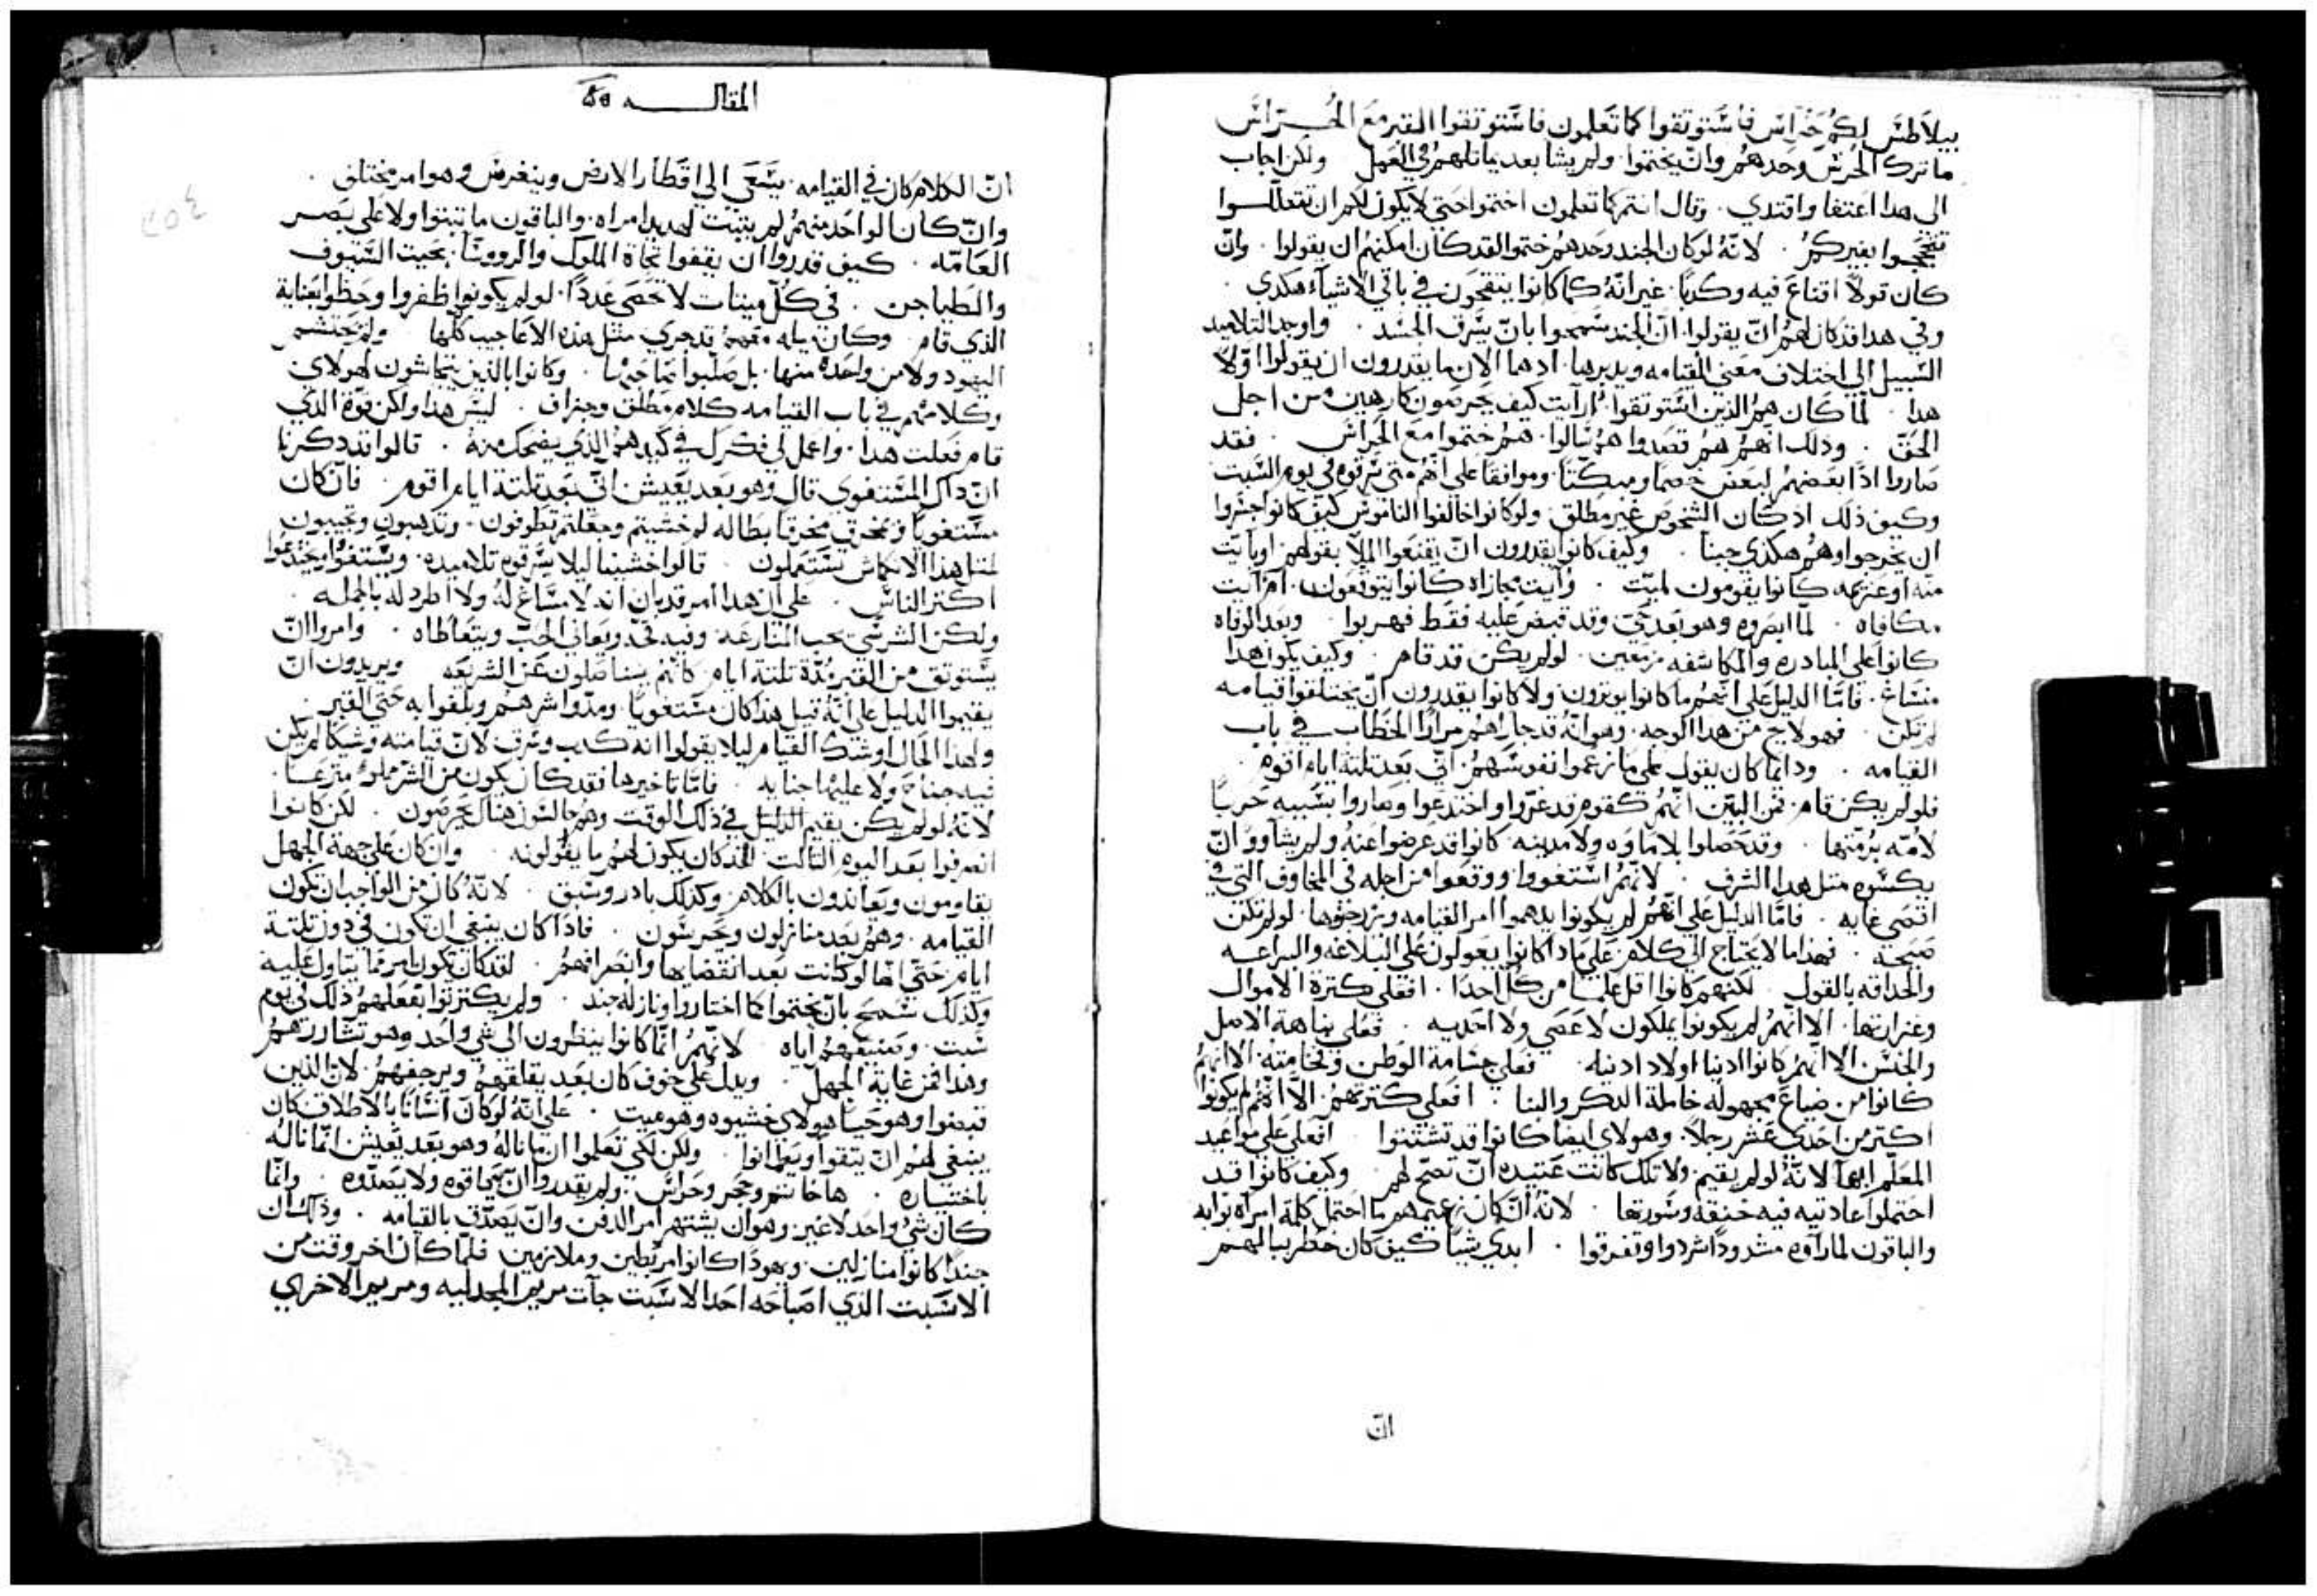 بيلاطس لكم حراس فاستوتقوا كما تعلمون فاستوتقوا القبر مع الحراس
ما ترك الحرس وحدهم وان يختموا ولم يشا بعد ما تلاهم في العمل ولكن اجاب
الي هدا اعتفا واقتدي . وقال انتم كما تعلمون اختموا حتي لا يكون لكم ان تتعللوا
بغيركم . لانه لو كان الجند وحدهم ختموا لقد كان امكنهم ان يقولوا . وان
كان قولا لا اقناع فيه وكدبا . غير انه كما كانوا يتقحون في باقي الاشياء هكدي .
وفي هدا قد كان لهم ان يقولوا ان الجند سمحوا بان يسرق الجسد . واوجد التلاميد
السبيل الي اختلاف معني القيامه ويدبرها . ادها الان ما يقدرون ان يقولوا ولا
هدا . لما كان هم الدين استوتقوا ارآيت كيف يحرصون كارهين من اجل
الحق . ودلك انهم هم قصدوا هم سالوا . هم ختموا مع الحراس . فقد
صاروا ادا بعضهم لبعض خصما ومبكتا . وموافقا علي انهم متي سرقوه في يوم السبت
وكيف دلك اد كان الشخوص غير مطلق ولو كانوا خالفوا الناموس كيف كانوا جسروا
ان يخرجوا وهم هكدي جبنا . وكيف كانوا يقدرون ان يقنعوا الملا بقولهم او بايت
كانوا يقومون لميت . وايت مجازاه كانوا يتوقعون . ام آيت
مكافاه . لما ابصروه وهو بعد حي وقد قبض عليه فقط فهربوا . وبعد الوفاه
كانوا علي المبادره والمكاشفه مزمعين . لو لم يكن قد قام . وكيف يكون هدا
منساغ . فاما الدليل علي انهم ما كانوا يوترون ولا كانوا يقدرون ان يختلقوا قيامه
لم تكن . فهو لايح من هدا الوجه . وهو انه قد جاراهم مرارا الخطاب في باب
القيامه . ودايما كان يقول علي ما زعموا نفوسهم اني بعد تلتة ايام اقوم .
فلو لم يكن قام . فمن البين انهم كقوم قد غروا واختدعوا وصاروا بسببه حربا
لامه برمتها . وقد حصلوا بلا ماوه ولا مدينه كانوا قد عرضوا عنه ولم يشاووا ان
يكسوه متل هدا الشرف . لانهم استغووا ووقعوا من اجله في المخاوف التي في
اقصي غايه . فاما الدليل علي انهم لم يكونوا يدهموا امر القيامه ويزخرفوها لو لم تكن
صحيحه . فهدا ما لا يحتاج الي كلام علي مادا كانوا يعولون علي البلاغه والبراعه
والحداقه بالقول . لكنهم كانوا اقل علما من كل احدا . افعلي كترة الاموال
وغزارتها . الا انهم لم يكونوا يملكون لا عصي ولا احديه . فعلي نباهة الاصل
والجنس . الا انهم كانوا ادنيا اولاد ادنيا . فعلي جسامة الوطن وفخامته . الا انهم
كانوا من ضياع مجهوله خاملة الدكر والنبا . افعلي كترتهم الا انهم لم يكونوا
اكتر من احدي عشر رجلا . وهولاي ايضا كانوا قد تشتتوا . افعلي علي مواعيد
المعلم ايها لانه لو لم يقيم ولا تلك كانت عتيده ان تصح لهم . وكيف كانوا قد
احتملوا عاديه فيه خنقه وسورتها . لانه ان كان زعيمهم ما احتمل كلمة امراه بوابه
والباقون لما راوه مشدودا شردوا وتفرقوا . ابدي شيا كيف كان خطر ببالهم
ان
المقاله ٨٥
ان الكلام كان في القيامه يسعي الي اقطار الارض وينغرس وهو امر مختلق .
وان كان الواحد منهم لم يتبت لتهديد امراه . والباقون ما تبتوا ولا علي بصر
العامه . كيف قدروا ان يقفوا تجاة الملوك والروسا . بحيت السيوف
والطياجن . في كل ميتات لا تحصي عددا . لو لم يكونوا ظفروا وحظوا بعناية
الدي قام . وكان معهم قد جري متل هده الاعاجيب كلها ولم تحتشم
اليهود ولا من واحده منها . بل صلبوا صاحبها . وكانوا بالدين يتحاشون لهولاي
وكلامهم في باب القيامه كلام مطلق وجزاف . ليس هدا ولكن قوة الدي
قام فعلت هدا . واعمل لي فكرك في كيدهم الدي يضحك منه . قالوا قد دكرنا
ان داك المستغوي قال وهو بعد يعيش اني بعد تلتة ايام اقوم . فان كان
مستغويا وتمخرق مخرقا بطاله لم خشيتم وجعلتم تطوفون . وتدهبون وتجيبون
هدا الانكماش تستعملون . قالوا خشينا ليلا يسرقوه تلاميده . ويستغووا ويختدعوا
اكتر الناس . علي ان هدا امر قد بان انه لا مساغ له ولا اطراد له بالجمله .
ولكن الشر شي يحب المنازعه وفيه تحد ويعاني الخب ويتعاطاه . وامروا ان
يستوتق من القبر مدة تلتة ايام كانهم يناضلون عن الشريعه ويريدون ان
يقيموا الدليل علي انه قبل هدا كان مستغويا . ومدوا شرهم وبلغوا به حتي القبر .
ولهدا الحال اوشك القيام ليلا يقولوا انه كدب وسرق لان قيامته وشيكا لم يكن
فيه جناح ولا عليها جنايه . فاما تاخيرها فقد كان يكون من الشر مملو مترعا .
لانه لو لم يكن يقيم الدليل في دلك الوقت وهم جالسون هناك يحرسون . لكن كانوا
انصرفوا بعد اليوم التالت . لقد كان يكون لهم ما يقولونه . وان كان علي جهة الجهل
يقاومون ويعاندون بالكلام وكدلك بادر وسبق . لانه كان من الواجب ان تكون
القيامه . وهم بعد منازلون ويحرسون . فادا كان ينبغي ان تكون في دون تلتة
ايام حتي انها لو كانت بعد انقضايها وانصرافهم . لقد كان يكون امر مما يتاول عليه
وكدلك سمح بان يختموا كما اختاروا ونازله جند . ولم يكترتوا بفعلهم دلك في يوم
سبت . وتعنتهم اياه لانهم انما كانوا ينظرون الي شي واحد وهو تشاررهم
وهدا فمن غاية الجهل . ويدل علي خوف كان بعد يقلقهم ويرجفهم . لان الدين
قبضوا وهو حيا هولاي خشيوه وهو ميت . علي انه لو كان انسانا بالاطلاق كان
ينبغي لهم ان يتقوا ويطمانوا . ولكن لكي تعلموا ان ما ناله وهو بعد يعيش انما ناله
باختياره . هاخاتم وحجر وحراس . ولم يقدروا ان يعاقوه ولا يصدوه . وانما
كان شي واحد لا غير . وهو ان يشتهر امر الدفن وان يصدق بالقيامه . ودلك ان
جندا كانوا منازلين . ويهودا كانوا مرتبطين وملازمين فلما كان اخر وقت من
الاسبت الدي اصباحه احد الاسبت جآت مريم المجدليه ومريم الاخري